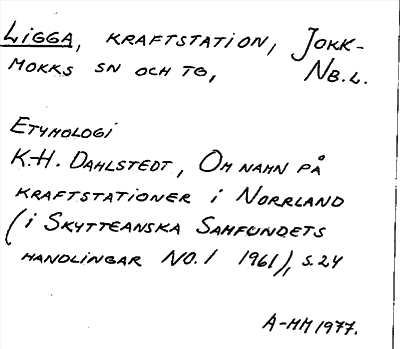 LIGGA, KRAFTSTATION, JOKK-
MOKKS SN OCH TG, NB.L.
ETYMOLOGI
K.-H. DAHLSTEDT, OM NAMN PÅ
KRAFTSTATIONER I NORRLAND
(I SKYTTEANSKA SAMFUNDETS
HANDLINGAR NO. 1 1961), S. 24
A-MM 1977.